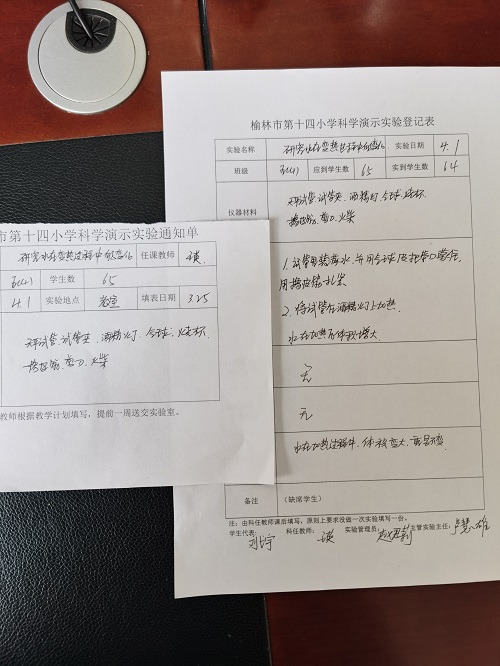 榆林市第十四小学科学演示实验登记表
实验名称 研究水在变热过程中的变化 实验日期 4.1
班级 应到学生数 65 实到学生数 64
仪器材料 试管 试管夹 酒精灯 气球 烧杯
橡皮筋 剪刀 火柴
1. 试管里装满水
用橡皮筋扎紧
2. 将试管在酒精灯上加热
水在加热后体积增大
无
无
水在加热过程中,体积变大,重量不变
备注 (缺席学生)
注:由科任教师课后填写,原则上要求没做一次实验填写一份。
学生代表: 科任教师: 实验管理员: 主管实验主任:
市第十四小学科学演示实验通知单
研究水在变热过程中的变化 任课教师
学生数 65
4.1 实验地点 教室 填表日期 3.25
试管 试管夹 酒精灯 气球 烧杯
橡皮筋 剪刀 火柴
教师根据教学计划填写,提前一周送交实验室。